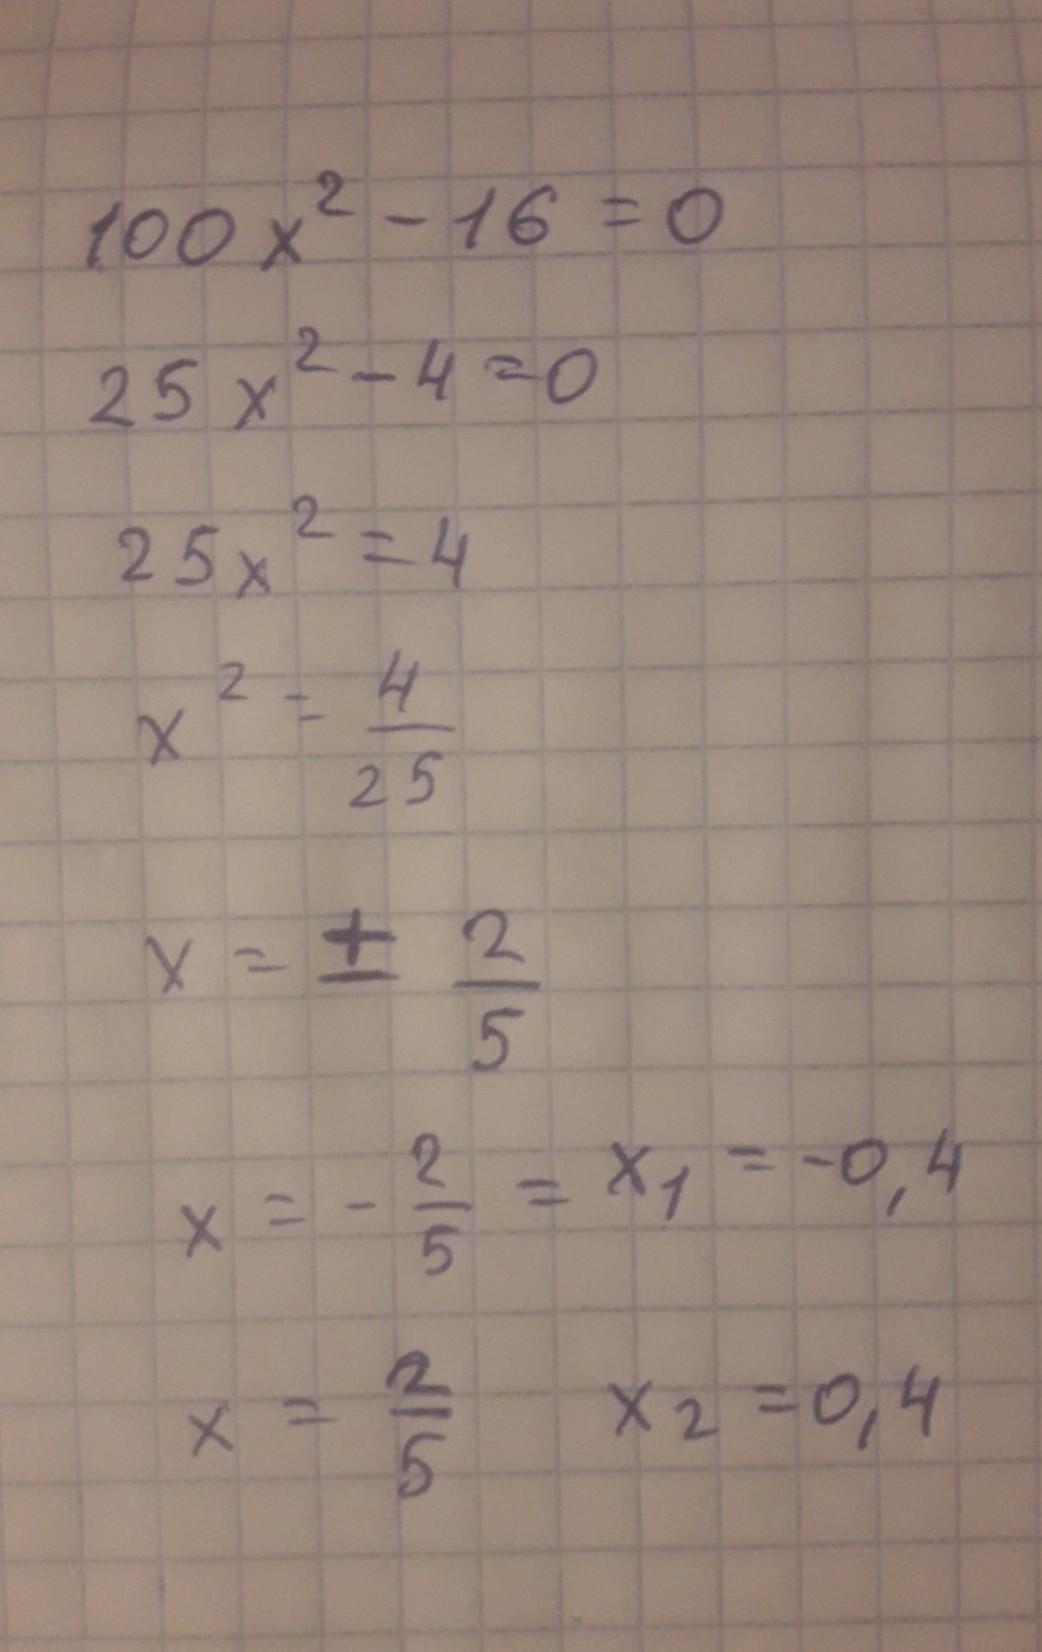 100x² - 16 = 0
25x² - 4 = 0
25x² = 4
x² = 4/25
x = ± 2/5
x = - 2/5 = x₁ = -0,4
x = 2/5 x₂ = 0,4